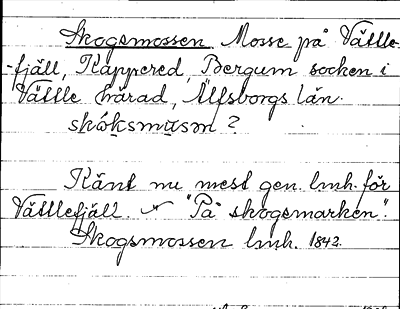 Skogsmossen Mosse på Vättle-
-fjäll, Kappered, Bergum socken i
Vättle härad, Älfsborgs län.
skóksmusən ?
Känt nu mest gen. lmh. för
Vättlefjäll "På skogsmarken".
Skogsmossen lmh. 1842.